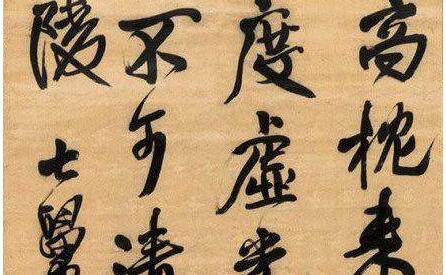 高枕来
度虛
不可清
陵七